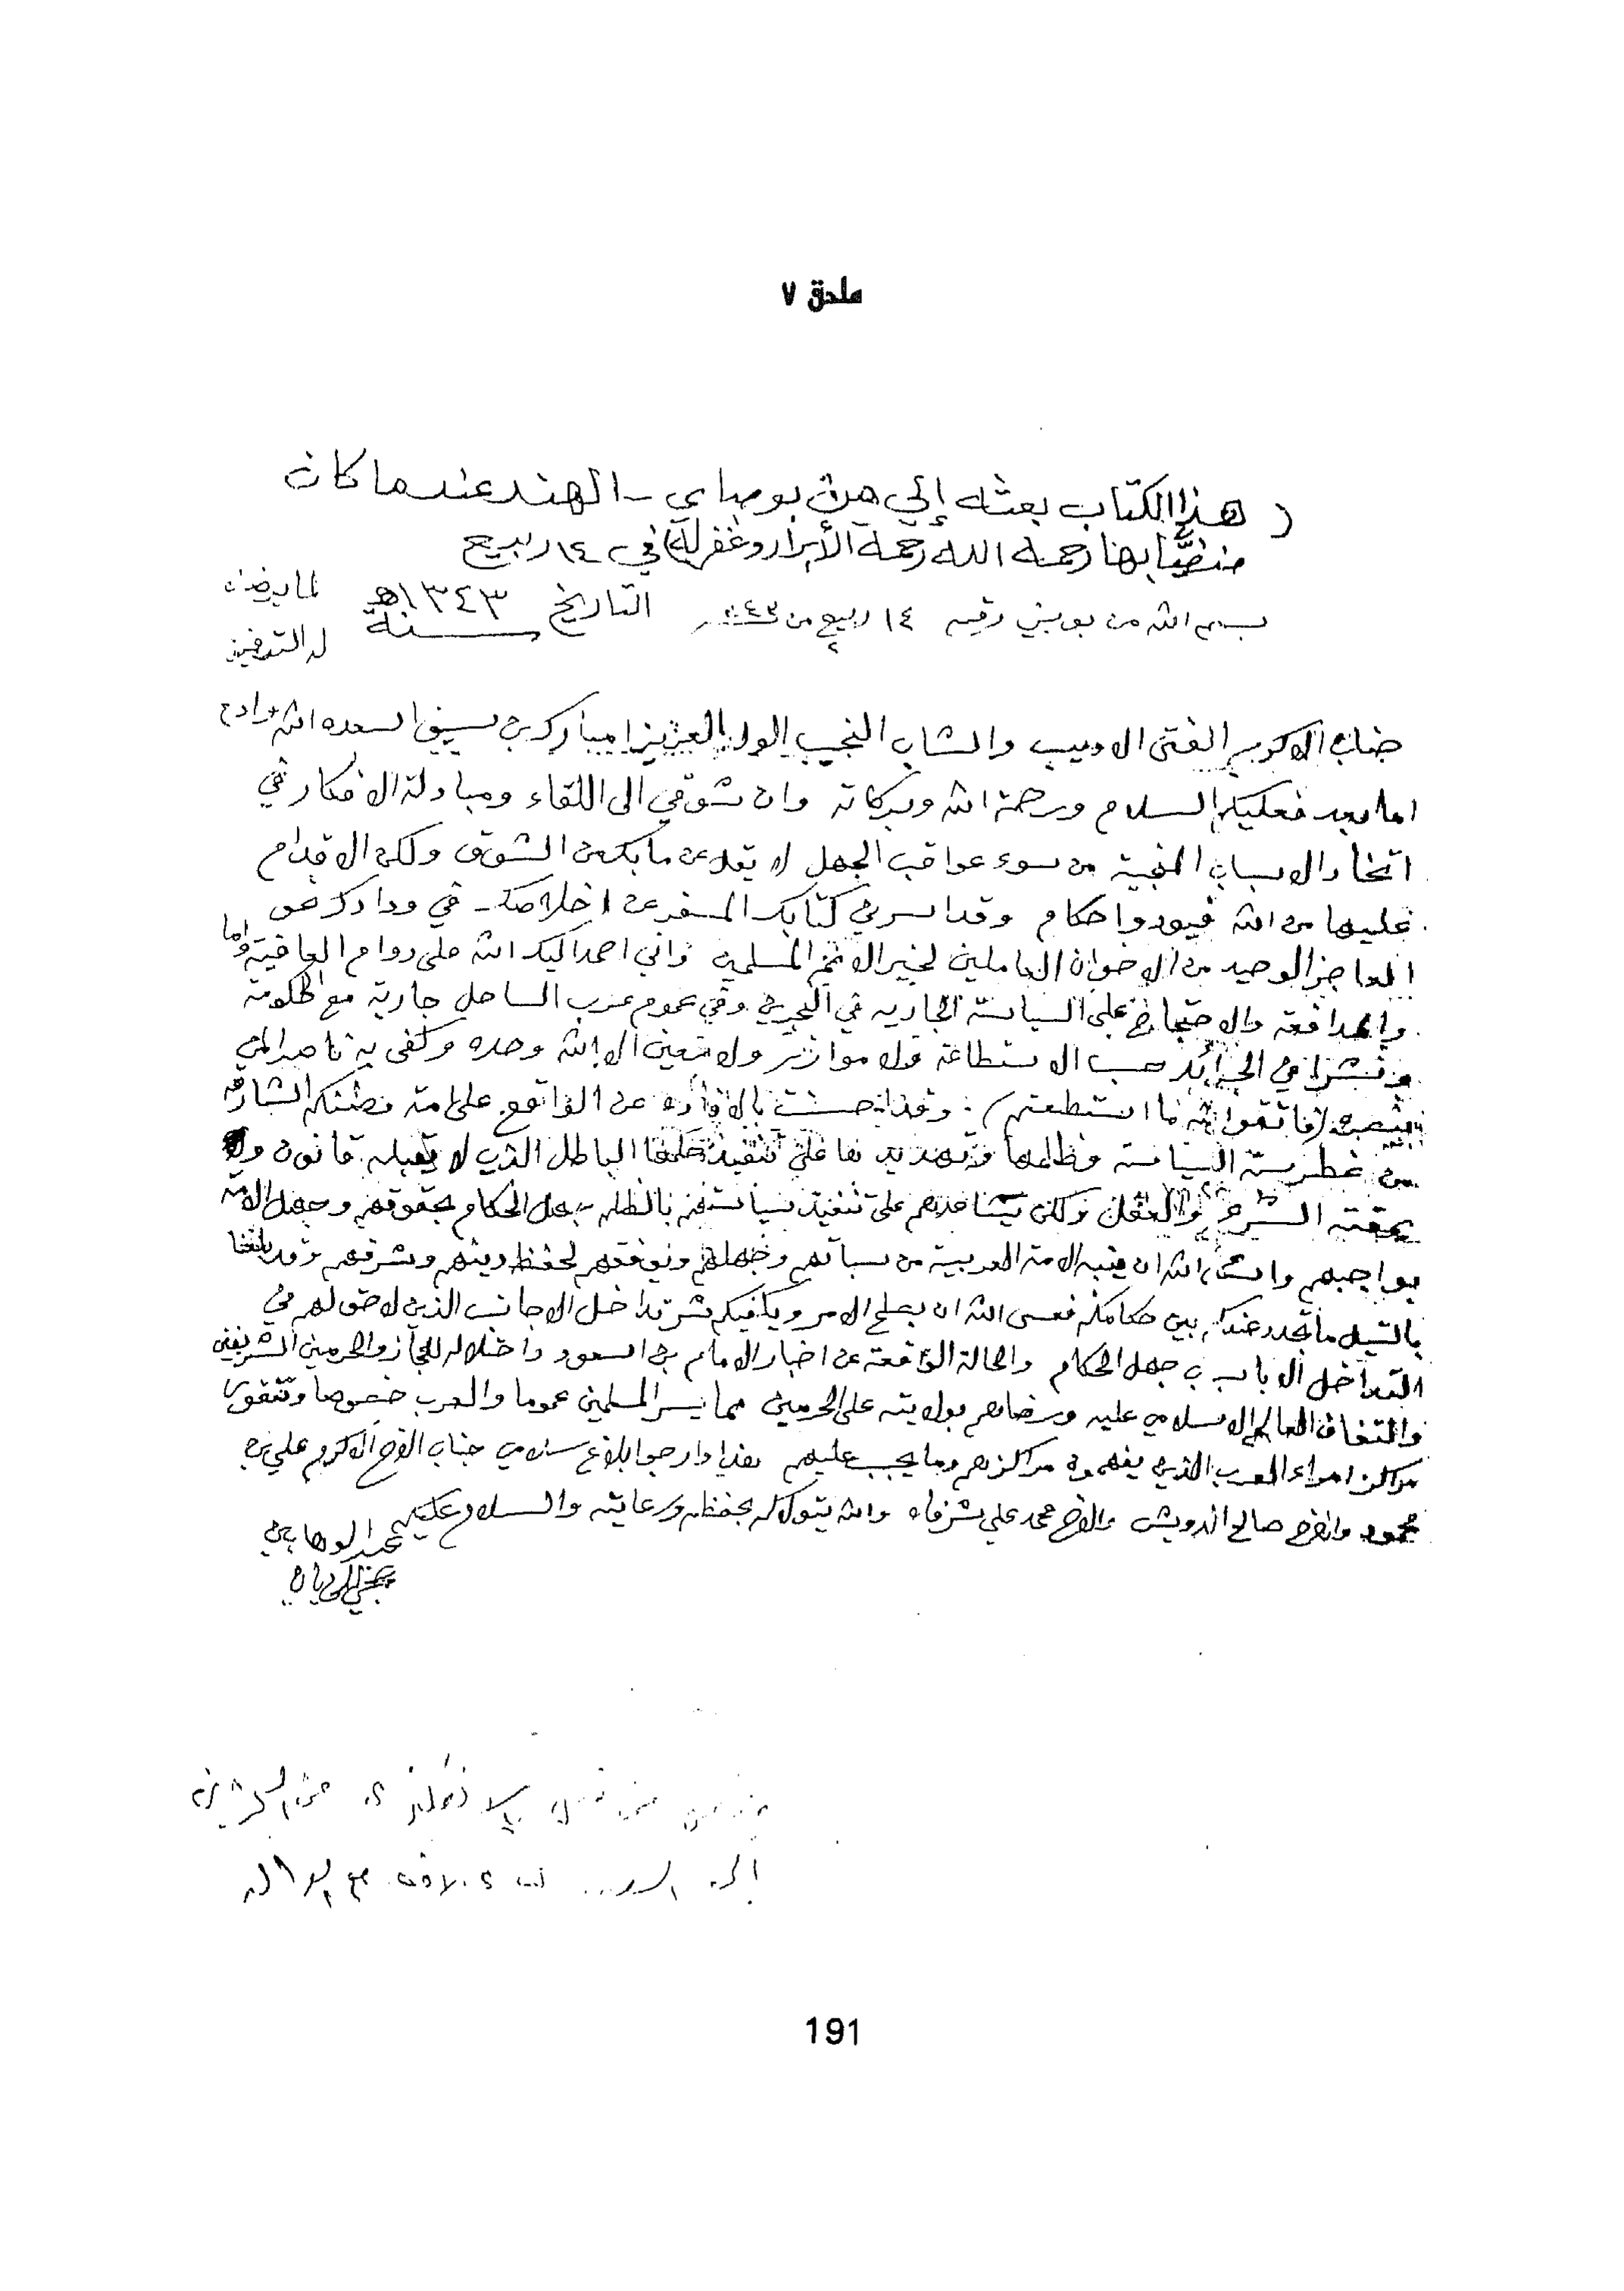 ملحق ٧
( هذا الكتاب بعثه إلي من بومباي - الهند عندما كان
منفيًّا بها رحمه الله رحمة الأبرار وغفر له) في ١٤ ربيع
بسم الله من بومبي رقيم ١٤ ربيع من ٤٣ التاريخ ١٣٤٣هـ لما يرضيه
سنة له التوفيق
جناب الاكرم الفتى الاديب والشاب النجيب الولد العزيز امبارك بن سيف اسعده الله وادام
اما بعد فعليكم السلام ورحمة الله وبركاته وان شوقي الى اللقاء ومبادلة الافكار في
اتخاذ الاسباب المنجية من سوء عواقب الجهل لا يقل عن ما بك من الشوق ولكن الاقدام
عليها من الله قيود واحكام وقد اسرني كتابك المسفر عن اخلاصك في ودادك نحو
العاجز الوحيد من الاخوان العاملين لخير الامم المسلمين واني احمد اليك الله على دوام العافية واما
والمدافعة والاحتجاج على السياسة الجاريه في البحرين وفي عموم عرب الساحل جارية مع الحكومة
وننشر في الجرائد حسب الاستطاعة ولا موازر ولا معين الا الله وحده وكفى به ناصرا لمن
(فاتقوا الله ما استطعتم) وقد احسنت بالافاده عن الواقع على امة وطنكم الشارقه
من غطرسة السياسة وظلمها وتهديدها على تنفيذ الباطل الذي لا يقبله قانون ولا
الشرع والعقل ولكن يساعدهم على تنفيذ سياستهم بالظلم جهل الحكام بحقوقهم وجهل الامة
بواجبهم واسأل الله ان ينبه الامة العربية من سباتهم وجهلهم ويوفقهم لحفظ دينهم وشرفهم وقد بلغنا
ما تجدد عندكم بين حكامكم فعسى الله ان يصلح الامر ويكفيكم شر تداخل الاجانب الذين لا حق لهم في
التداخل الا باسباب جهل الحكام والحالة الواقعة عن اخبار الامام بن السعود واحتلاله للحجاز والحرمين الشريفين
والتفاف العالم الاسلامي عليه ورضاهم بولايته على الحرمين مما يسر المسلمين عموما والعرب خصوصا وتتقوى
مراكز امراء العرب الذين يفهمون مراكزهم وما يجب عليهم هذا وارجو ابلاغ سلامي جناب الاخ الاكرم علي بن
محمود والاخ صالح الدويش والاخ محمد علي شرفاء والله يتولاكم بحفظه ورعايته والسلام عليكم
عبد الوهاب بن
حجي الزياني
191